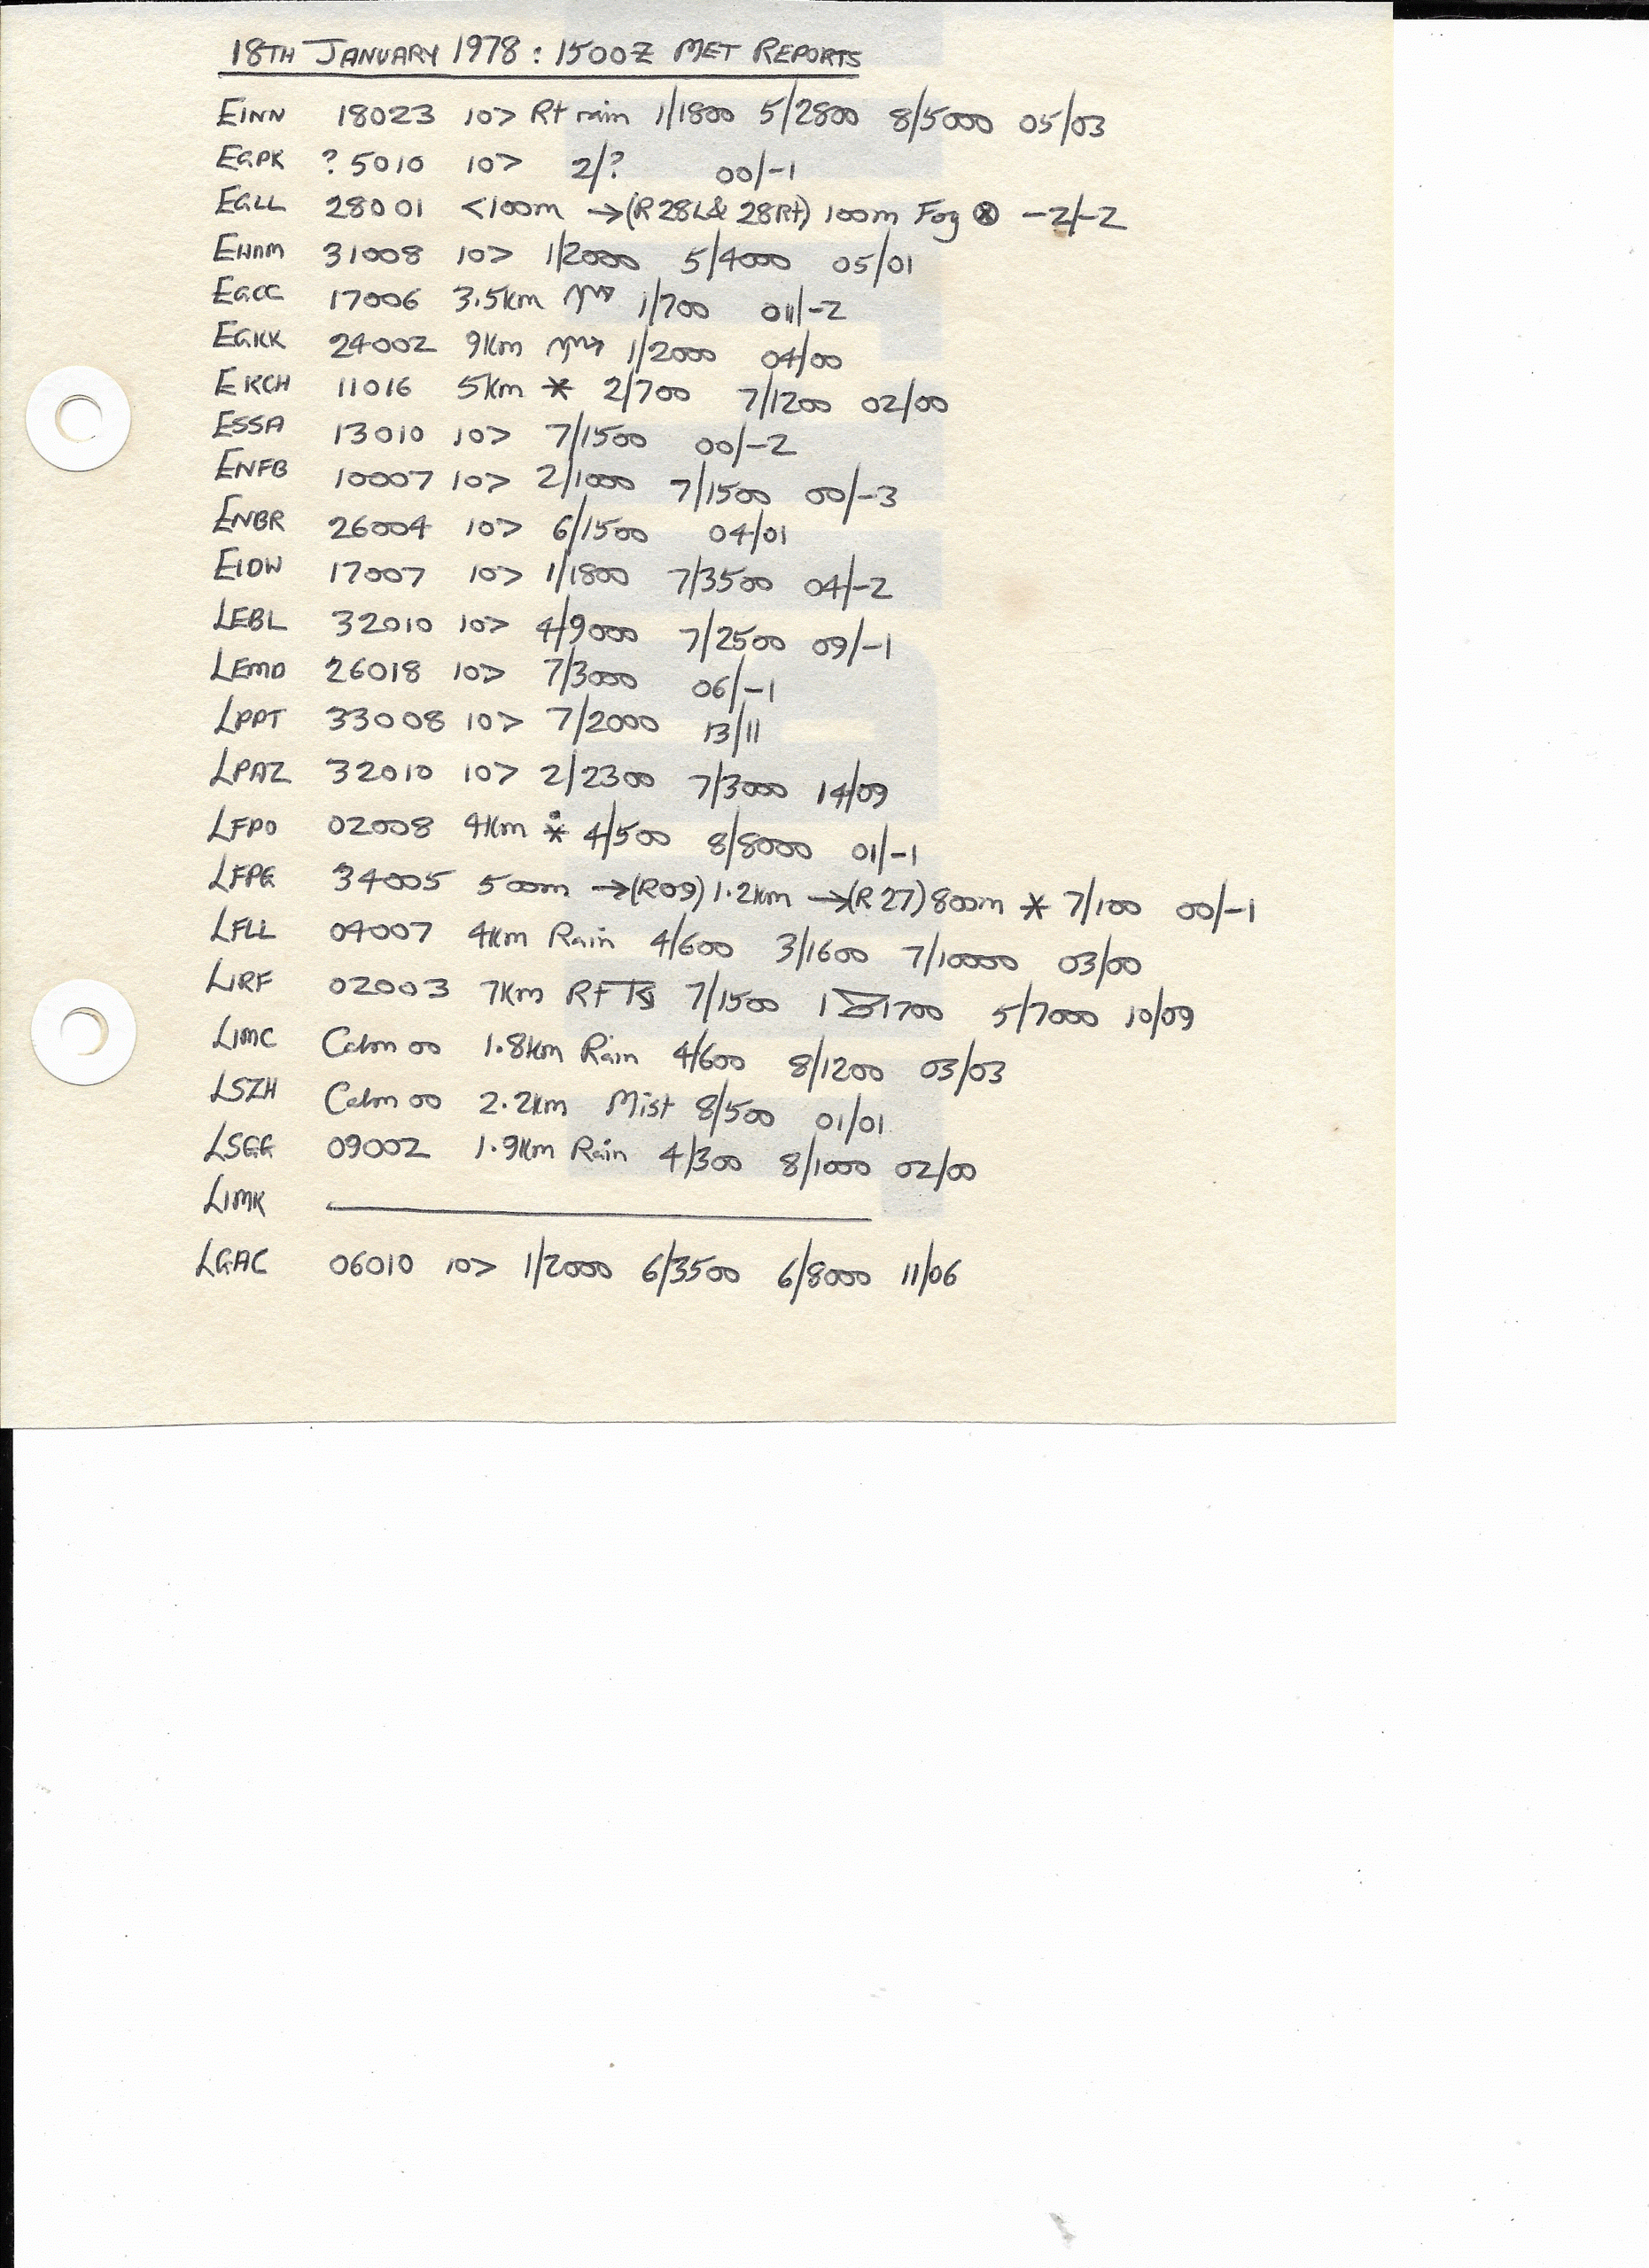 18TH JANUARY 1978 : 1500Z MET REPORTS
EINN 18023 10> Rt rain 1/1800 5/2800 8/5000 05/03
EGPK ?5010 10> 2/? 00/-1
EGLL 28001 <100m →(R28L& 28Rt) 100m Fog ⊗ -2/-2
EHAM 31008 10> 1/2000 5/4000 05/01
EGCC 17006 3.5km 1/700 01/-2
EGKK 24002 9km 1/2000 04/00
EKCH 11016 5km * 2/700 7/1200 02/00
ESSA 13010 10> 7/1500 00/-2
ENFB 10007 10> 2/1000 7/1500 00/-3
ENBR 26004 10> 6/1500 04/01
EIDW 17007 10> 1/1800 7/3500 04/-2
LEBL 32010 10> 4/9000 7/2500 09/-1
LEMD 26018 10> 7/3000 06/-1
LPPT 33008 10> 7/2000 13/11
LPAZ 32010 10> 2/2300 7/3000 14/09
LFPO 02008 4km * 4/500 8/8000 01/-1
LFPG 34005 500m →(R09) 1.2km →(R27) 800m * 7/100 00/-1
LFLL 04007 4km Rain 4/600 3/1600 7/10000 03/00
LIRF 02003 7km 7/1500 1 1700 5/7000 10/09
LIMC Calm 00 1.8km Rain 4/600 8/1200 03/03
LSZH Calm 00 2.2km Mist 8/500 01/01
LSGG 09002 1.9km Rain 4/300 8/1000 02/00
LIMK
LGAC 06010 10> 1/2000 6/3500 6/8000 11/06